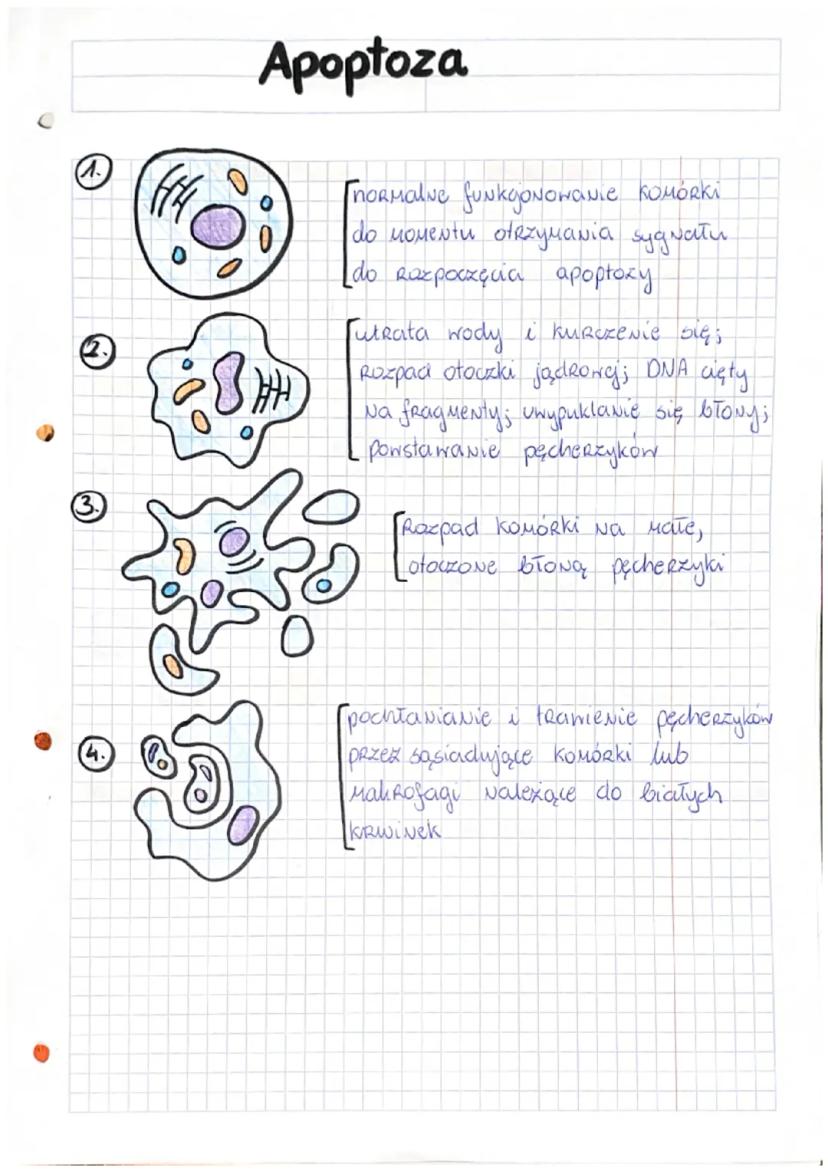 Apoptoza
1.
normalne funkcjonowanie komórki
do momentu otrzymania sygnału
do rozpoczęcia apoptozy
2.
utrata wody i kurczenie się;
rozpad otoczki jądrowej; DNA cięty
na fragmenty; uwypuklanie się błony;
powstawanie pęcherzyków
3.
Rozpad komórki na małe,
otoczone błoną pęcherzyki
4.
pochłanianie i trawienie pęcherzyków
przez sąsiadujące komórki lub
makrofagi należące do białych
krwinek